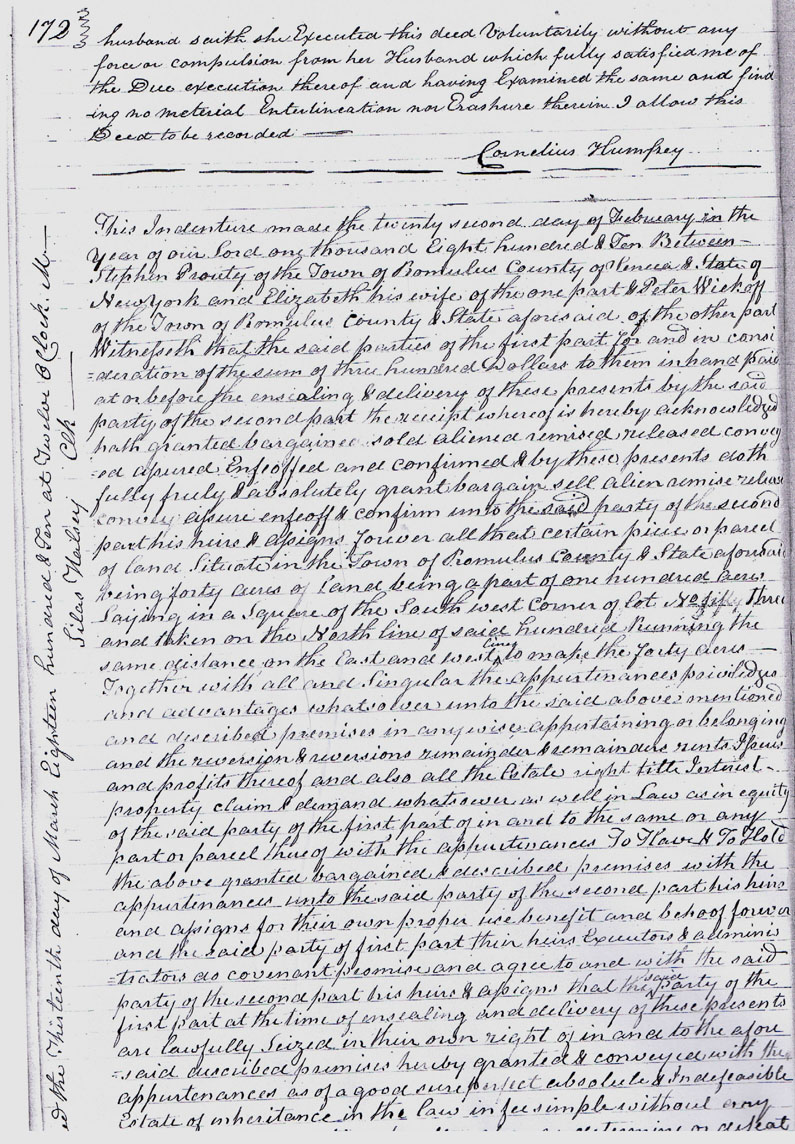 172
husband saith she Executed this deed Voluntarily without any
force or compulsion from her Husband which fully satisfied me of
the Due execution thereof and having Examined the same and find
ing no meterial Enterlineation nor Erashure therein I allow this
Deed to be recorded
Cornelius Humfrey
This Indenture made the twenty second day of February in the
Year of our Lord one thousand Eight hundred & Ten Between
Stephen Prouty of the Town of Romulus County of Seneca & State of
New York and Elizabeth his wife of the one part & Peter Wickoff
of the Town of Romulus County & State aforesaid of the other part
Witnesseth that the said parties of the first part for and in consi
=deration of the sum of three hundred Dollars to them in hand paid
at or before the ensealing & delivery of these presents by the said
party of the second part the receipt whereof is hereby acknowledged
hath granted bargained sold aliened remised released convey
=ed assured Enfeoffed and confirmed & by these presents doth
fully freely & absolutely grant bargain sell alien remise release
convey assure enfeoff & confirm unto the said party of the second
part his heirs & assigns forever all that certain piece or parcel
of land Situate in the Town of Romulus County & State aforesaid
being forty acres of Land being a part of one hundred acres
Laying in a Square of the South west Corner of lot No fifty three
and taken on the North line of said hundred Running the
same distance on the East and west lines to make the forty acres
Together with all and Singular the appurtenances priviledges
and advantages whatsoever unto the said above mentioned
and described premises in any wise appertaining or belonging
and the reversion & reversions remainder & remainders rents Issues
and profits thereof and also all the Estate right title Interest
property claim & demand whatsoever as well in Law as in equity
of the said party of the first part of in and to the same or any
part or parcel thereof with the appurtenances To Have & To Hold
the above granted bargained & described premises with the
appurtenances unto the said party of the second part his heirs
and assigns for their own proper use benefit and behoof forever
and the said party of first part their heirs Executors & admini
=trators do covenant promise and agree to and with the said
party of the second part his heirs & assigns that the said party of the
first part at the time of ensealing and delivery of these presents
are lawfully Seized in their own right of in and to the afore
=said described premises hereby granted & conveyed with the
appurtenances as of a good sure perfect absolute & Indefeasible
Estate of inheritance in the law in fee simple without any
determine or defeat
ed the Thirteenth day of March Eighteen hundred & Ten at Twelve O Clock. M
Silas Halsey Clk